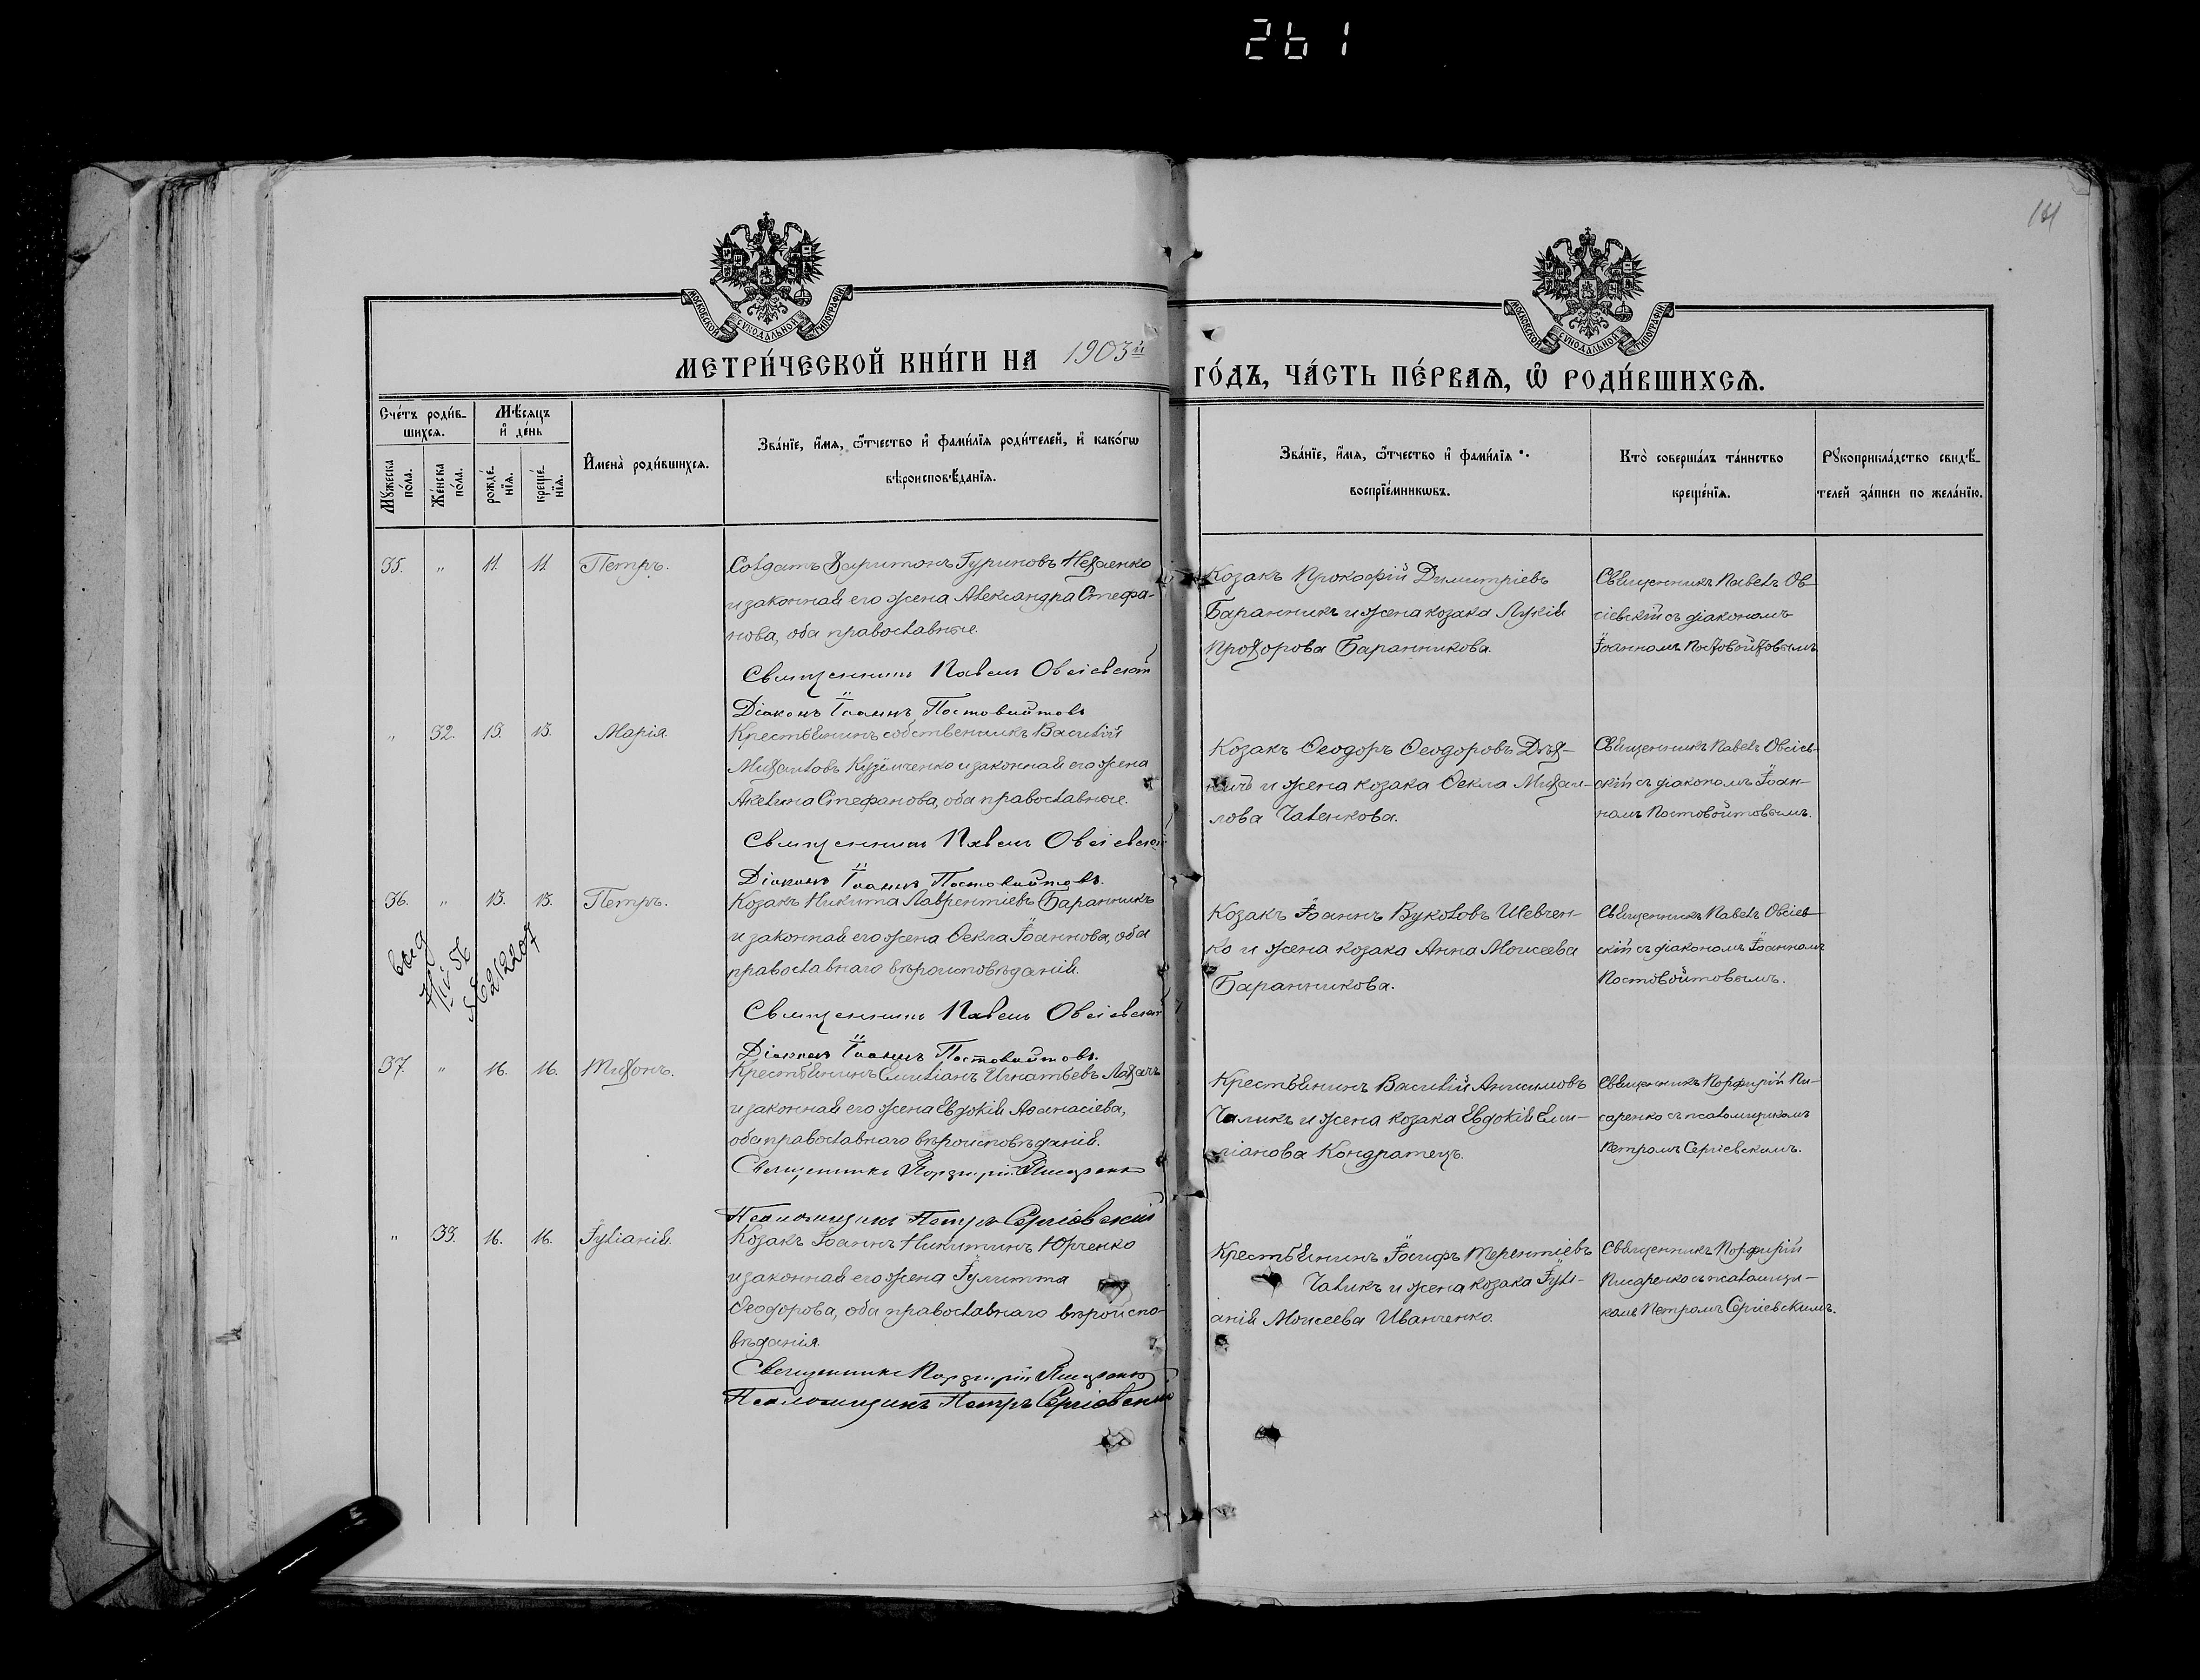 261
141
МОСКОВСКОЙ СѴНОДАЛЬНОЙ ТИПОГРАФІИ
МОСКОВСКОЙ СѴНОДАЛЬНОЙ ТИПОГРАФІИ
МЕТРИ́ЧЕСКОЙ КНИ́ГИ НА 1903й ГО́ДЪ, ЧА́СТЬ ПЕ́РВАѦ, Ѡ҆ РОДИ́ВШИХСѦ.
Сче́тъ роди́в-
шихсѧ.
Мꙋ́жеска по́ла.
Же́нска по́ла.
Мѣ́сяцъ
и҆ де́нь
рожде́-
нїѧ.
креще́-
нїѧ.
И҆мена̀ роди́вшихсѧ.
Зва́нїе, и҆́мѧ, ѻ҆́тчество и҆ фами́лїѧ роди́телей, и҆ како́гѡ
вѣроисповѣ́данїѧ.
Зва́нїе, и҆́мѧ, ѻ҆́тчество и҆ фами́лїѧ
воспрїе́мникѡвъ.
Кто̀ соверша́лъ та́инство
креще́нїѧ.
Рꙋкоприкла́дство свидѣ́-
телей за́писи по жела́нїю.
35. " 11. 11. Петръ.
Солдатъ Харитонъ Гуриновъ Нехаенко
и законная его жена Александра Стефа-
нова, оба православные.
Священникъ Павелъ Овсіевскій
Діаконъ Іоаннъ Постовойтовъ
Козакъ Прокофій Димитріевъ
Баранникъ и жена козака Лукія
Прохорова Баранникова.
Священникъ Павелъ Ов-
сіевскій съ діакономъ
Іоанномъ Постовойтовымъ
" 32. 13. 13. Марія
Крестьянинъ собственникъ Василій
Михаиловъ Кузёмченко и законная его жена
Акелина Стефанова, оба православные.
Священникъ Павелъ Овсіевскій
Діаконъ Іоаннъ Постовойтовъ.
Козакъ Ѳеодоръ Ѳеодоровъ
и жена козака Ѳекла Михаи-
лова Чаленкова.
Священникъ Павелъ Овсіев-
скій съ діакономъ Іоан-
номъ Постовойтовымъ.
36. " 13. 13. Петръ.
Козакъ Никита Лаврентіевъ Баранникъ
и законная его жена Ѳекла Іоаннова, оба
православнаго вѣроисповѣданія.
Священникъ Павелъ Овсіевскій
Діаконъ Іоаннъ Постовойтовъ.
Козакъ Іоаннъ Вуколовъ Шевчен-
ко и жена козака Анна Моисеева
Баранникова.
Священникъ Павелъ Овсіев-
скій съ діакономъ Іоанномъ
Постовойтовымъ.
выд
37. " 16. 16. Тихонъ.
Крестьянинъ Емиліанъ Игнатьевъ Лохачъ
и законная его жена Евдокія Аѳанасіева,
оба православнаго вѣроисповѣданія.
Священникъ Порфирій Писаренко
Псаломщикъ Петръ Сергіевскій
Крестьянинъ Василій Анисимовъ
Чаликъ и жена козака Евдокія Еми-
ліанова Кондратецъ.
Священникъ Порфирій Пи-
саренко съ псаломщикомъ
Петромъ Сергіевскимъ.
" 33. 16. 16. Іуліанія.
Козакъ Іоаннъ Никитинъ Юрченко
и законная его жена Іулитта
Ѳеодорова, оба православнаго вѣроиспо-
вѣданія.
Священникъ Порфирій Писаренко
Псаломщикъ Петръ Сергіевскій
Крестьянинъ Іосифъ Терентіевъ
Чаликъ и жена козака Іулі-
анія Моисеева Иванченко.
Священникъ Порфирій
Писаренко съ псаломщи-
комъ Петромъ Сергіевскимъ.